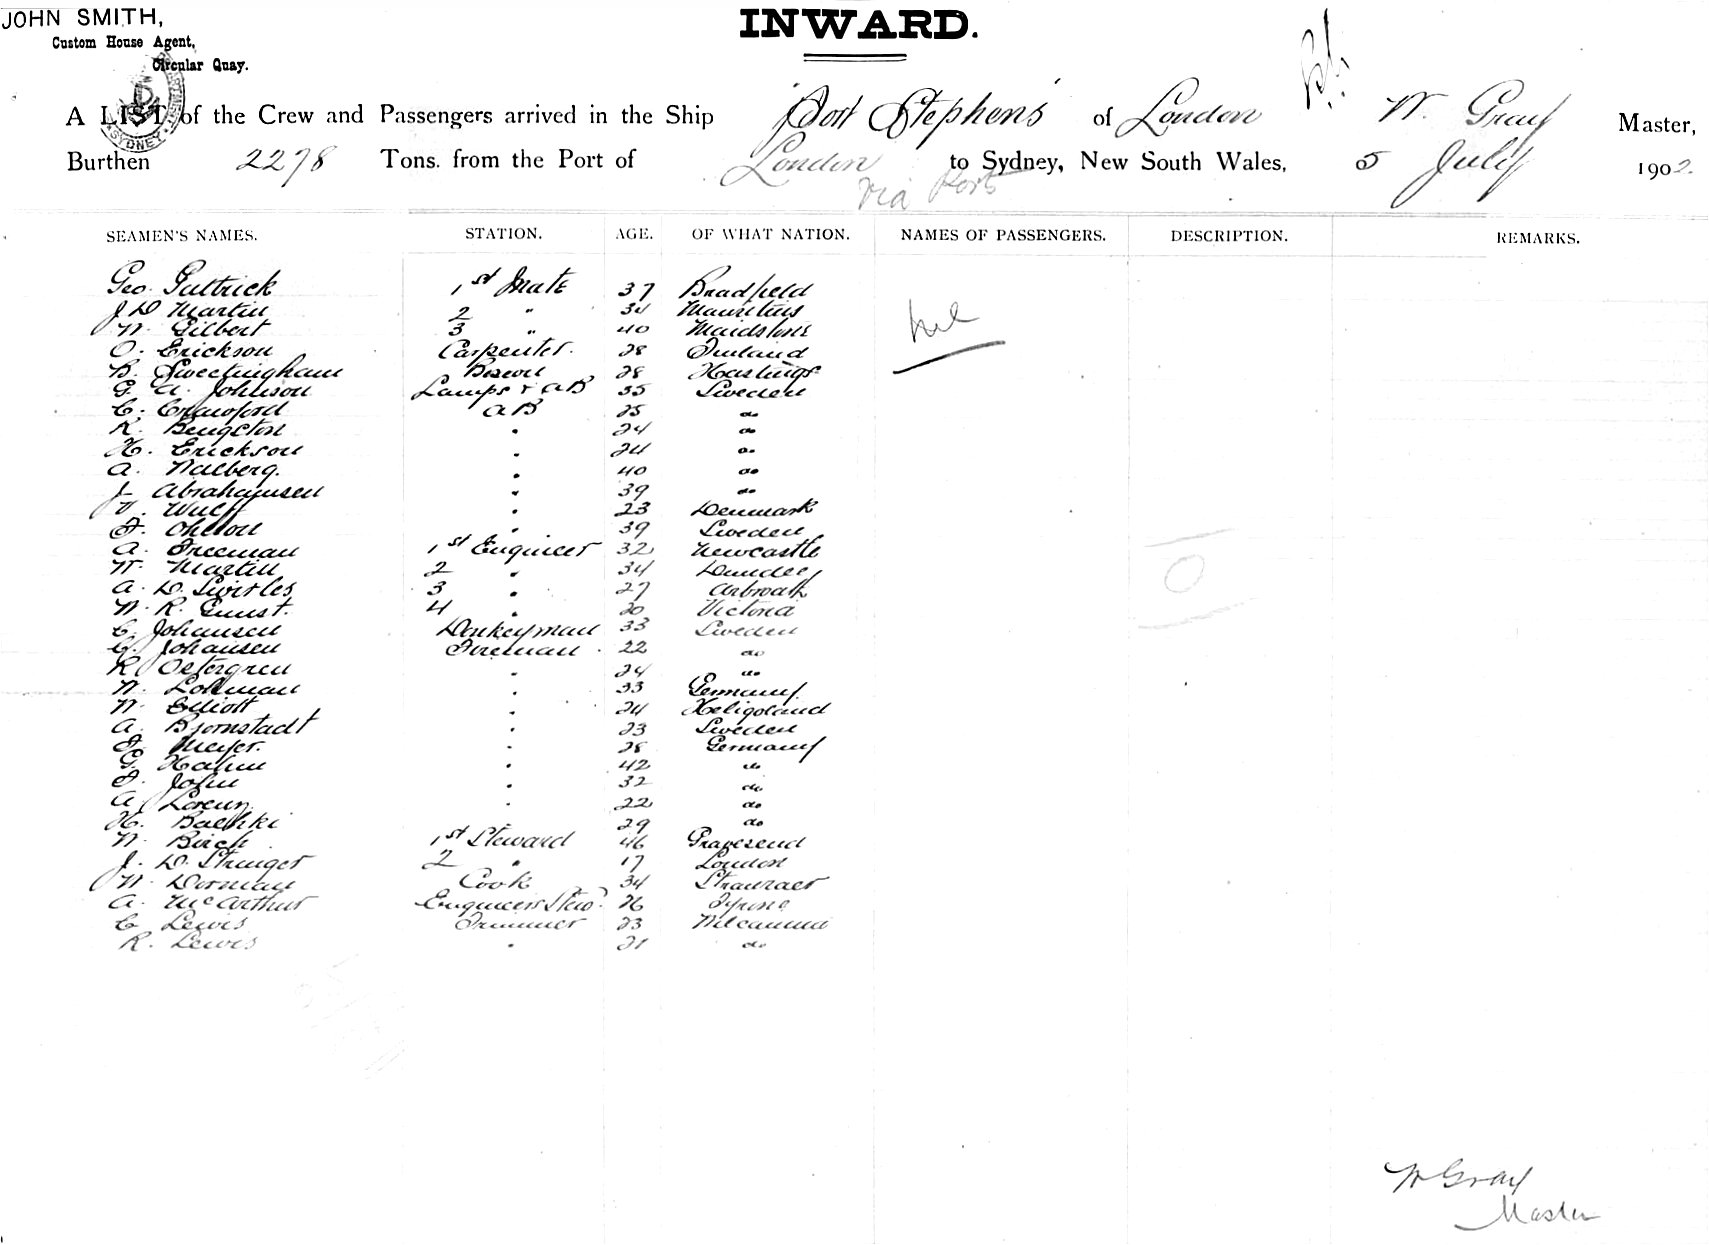 JOHN SMITH,
Custom House Agent,
Circular Quay.
INWARD.
A LIST of the Crew and Passengers arrived in the Ship "Port Stephens" of London W. Gray Master,
Burthen 2278 Tons. from the Port of London to Sydney, New South Wales, 5 July 1902.
via Ports
SEAMEN'S NAMES. STATION. AGE. OF WHAT NATION. NAMES OF PASSENGERS. DESCRIPTION. REMARKS.
Geo. Guttrick 1st Mate 37 Bradfield
J D Martin 2 " 34 Mauritius
W. Gilbert 3 " 40 Maidstone
O. Erickson Carpenter. 28 Finland
B. Sweetingham Bosun 28 Hastings
G. A. Johnson Lamps & AB 35 Sweden
C. Crawford AB 25 do
R. Bengston " 24 do
H. Erickson " 24 do
A. Walberg. " 40 do
J. Abrahamsen " 39 do
V. Wulff " 23 Denmark
F. Ohlson " 39 Sweden
A. Freeman 1st Engineer 32 Newcastle
W. Martin 2 " 34 Dundee
A. D. Swirles 3 " 27 Arbroath
W. R. Gunst. 4 " 20 Victoria
C. Johansen Donkeyman 33 Sweden
G. Johansen Fireman 22 do
R. Ostergren " 24 do
W. Lohman " 33 Germany
W. Elliott " 24 Heligoland
A. Bjornstadt " 23 Sweden
F. Meyer. " 28 Germany
G. Hahn " 42 do
F. John " 32 do
A. " 22 do
H. " 29 do
W. Birch 1st Steward 46 Gravesend
J. D. Stringer 2 " 17 London
W. Dornan Cook 34 Stranraer
A. McArthur Engineers Stew. 26 Tyrone
C Lewis Trimmer 23 Wilcannia
R. Lewis " 21 do
Nil
W Gray
Master